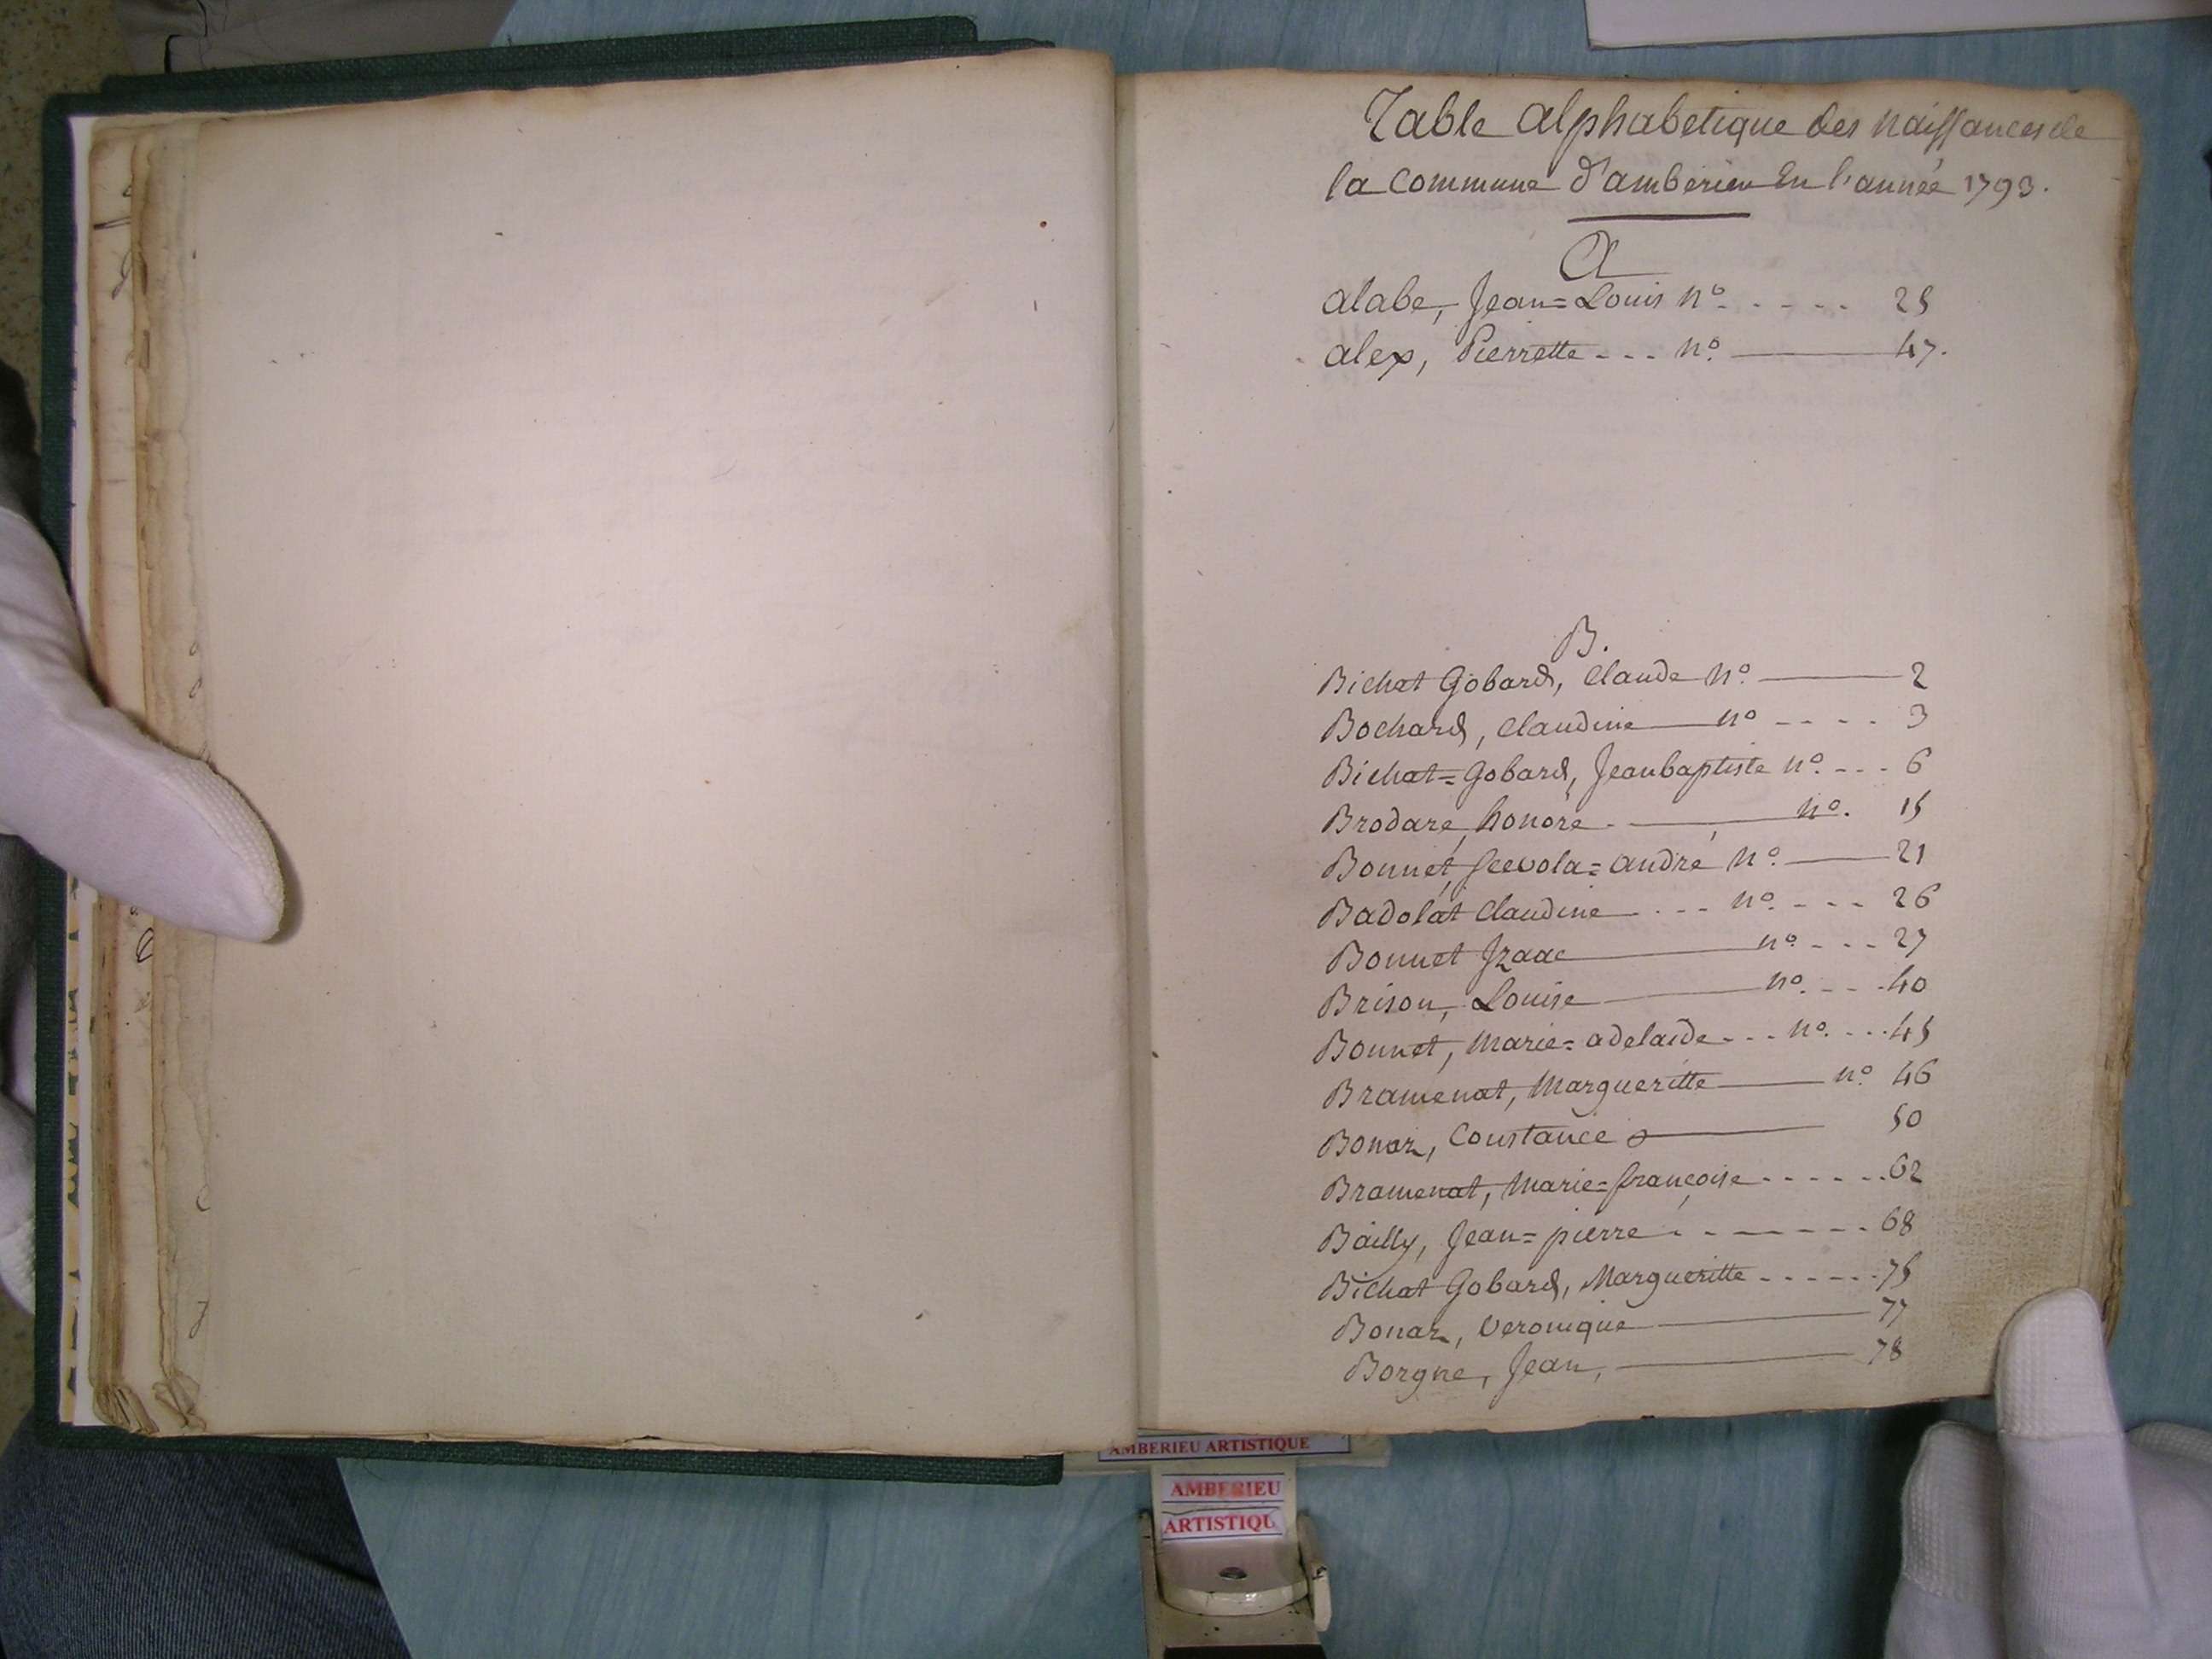 Table alphabetique des naissances de
la Commune d'amberieu En l'année 1793.
A
alabe, Jean=Louis n° - - - - - 25
alex, Pierrette - - - n°. 47.
B.
Bichat Gobard, Claude n°. 2
Bochard, Claudine n° - - - - 3
Bichat=Gobard, Jeanbaptiste n°. - - - 6
Brodare, honoré n°. 15
Bonnet, Scevola=andré n°. 21
Badolat Claudine - - - n°. - - - 26
Bonnet Izaac n°. - - - 27
Brison, Louise n°. - - - 40
Bonnet, Marie=adelaide - - - n°. - - - 45
Bramenat, Margueritte n°. 46
Bonaz, Constance 50
Bramenat, Marie=françoise - - - - - - 62
Bailly, Jean=pierre - - - - - - - 68
Bichat Gobard, Margueritte - - - - - - 75
Bonaz, Veronique 77
Borgne, Jean, 78
AMBERIEU ARTISTIQUE
AMBERIEU
ARTISTIQU